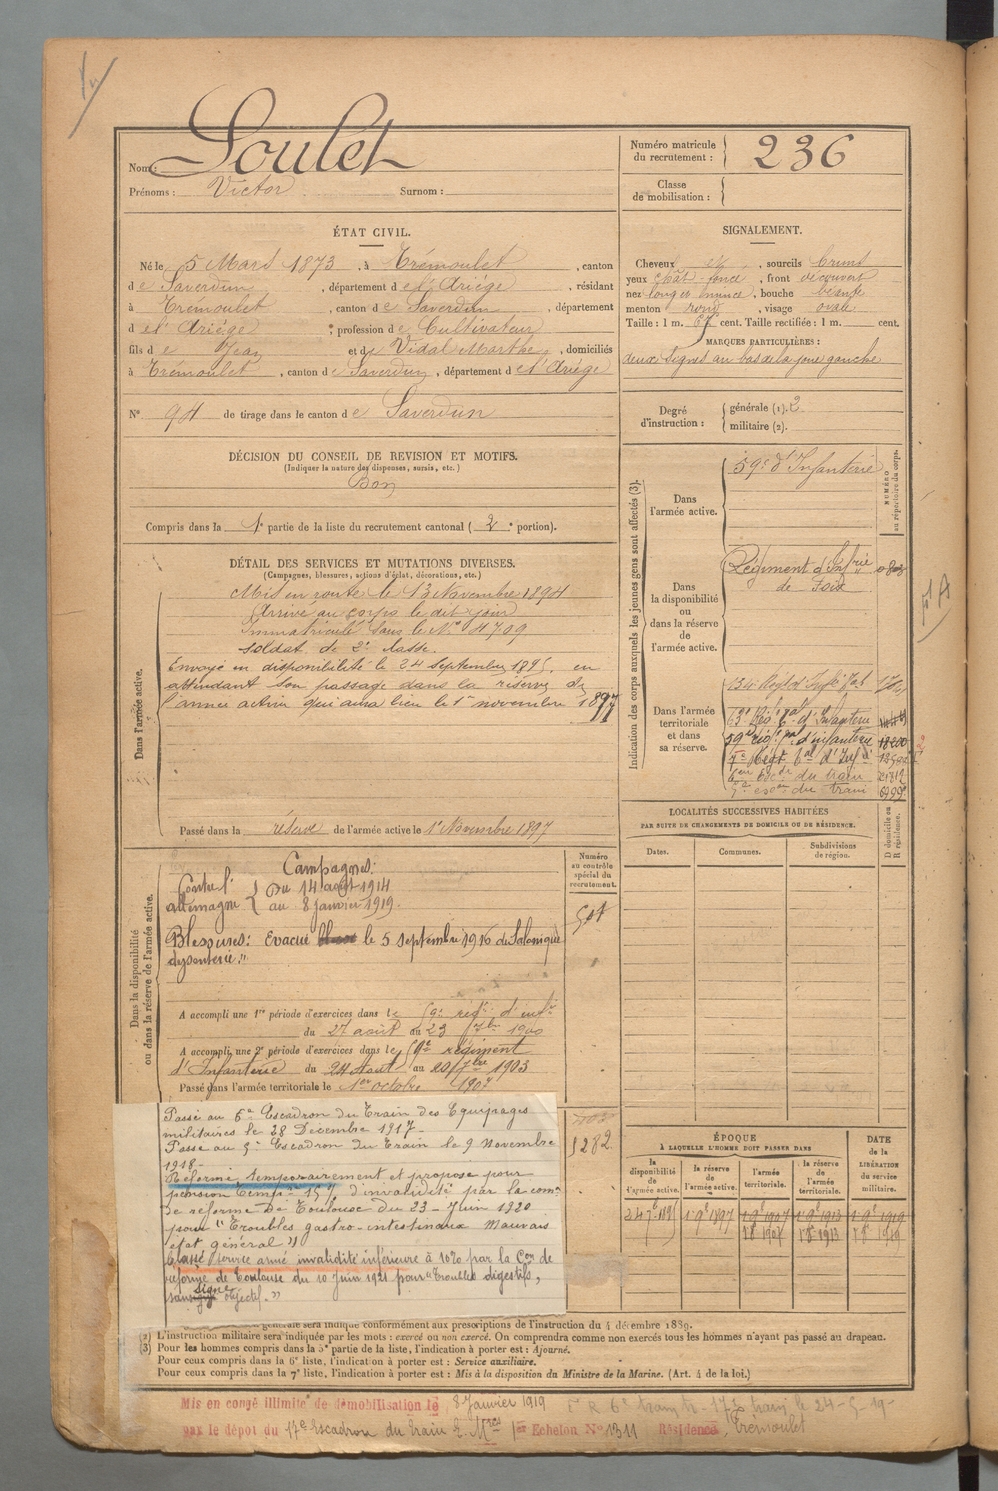 Nom : Soulet
Prénoms : Victor Surnom :
Numéro matricule du recrutement : 236
Classe de mobilisation :
ÉTAT CIVIL.
Né le 5 Mars 1873, à Trémoulet, canton
de Saverdun, département de l'Ariège, résidant
à Trémoulet, canton de Saverdun, département
de l'Ariège, profession de Cultivateur
fils de Jean et de Vidal Marthe, domiciliés
à Trémoulet, canton de Saverdun, département de l'Ariège
N° 94 de tirage dans le canton de Saverdun
SIGNALEMENT.
Cheveux et, sourcils bruns
yeux chât. foncé, front découvert
nez long et mince, bouche béante
menton rond, visage ovale
Taille : 1 m. 67 cent. Taille rectifiée : 1 m. cent.
MARQUES PARTICULIÈRES :
deux signes au bas de la joue gauche
Degré d'instruction : générale (1). 2
militaire (2).
DÉCISION DU CONSEIL DE REVISION ET MOTIFS.
(Indiquer la nature des dispenses, sursis, etc.)
Bon
Compris dans la 1e partie de la liste du recrutement cantonal (2e portion).
DÉTAIL DES SERVICES ET MUTATIONS DIVERSES.
(Campagnes, blessures, actions d'éclat, décorations, etc.)
Dans l'armée active.
Mis en route le 13 Novembre 1894
Arrivé au corps le dit jour
Immatriculé sous le N° 4709
soldat de 2e classe.
Envoyé en disponibilité le 24 septembre 1895, en
attendant son passage dans la réserve de
l'armée active qui aura lieu le 1er novembre 1897
Passé dans la réserve de l'armée active le 1er Novembre 1897
Indication des corps auxquels les jeunes gens sont affectés (3).
NUMÉRO au répertoire du corps.
Dans l'armée active.
59e d'Infanterie
Dans la disponibilité ou dans la réserve de l'armée active.
Régiment d'Infrie
de Foix
Dans l'armée territoriale et dans sa réserve.
134 Régt d'Infie
63e Rég. Tal d'Infanterie
59e rég. d'infanterie 18200
7e Régt Tal d'Inf
6eme Escdr du train
5e escon du train
LOCALITÉS SUCCESSIVES HABITÉES
PAR SUITE DE CHANGEMENTS DE DOMICILE OU DE RÉSIDENCE.
Dates. Communes. Subdivisions de région. D domicile ou R résidence.
Dans la disponibilité ou dans la réserve de l'armée active.
Numéro au contrôle spécial du recrutement.
Campagnes :
Contre l'Allemagne { Du 14 août 1914
au 8 janvier 1919.
Blessures : Evacué le 5 septembre 1916 de Salonique
dysenterie."
A accompli une 1re période d'exercices dans le 59e régt d'infie
du 27 août au 23 7bre 1900
A accompli une 2e période d'exercices dans le 59e régiment
d'Infanterie du 24 Août au 20 7bre 1903
Passé dans l'armée territoriale le 1er octobre 1907
1282
Passé au 6e Escadron du Train des Equipages
militaires le 28 Décembre 1917 -
Passé au 5e Escadron du Train le 9 Novembre
1918 -
Réformé temporairement et proposé pour
pension temp. 15 % d'invalidité par la comon
de réforme de Toulouse du 23 - Juin 1920
pour "Troubles gastro-intestinaux Mauvais
état général"
Classé service armé invalidité inférieure à 10% par la Con de
réforme de Toulouse du 10 Juin 1921 pour "Troubles digestifs,
sans signe objectif."
ÉPOQUE
À LAQUELLE L'HOMME DOIT PASSER DANS
DATE de la LIBÉRATION du service militaire.
la disponibilité de l'armée active. la réserve de l'armée active. l'armée territoriale. la réserve de l'armée territoriale.
24 7bre 1895 1er 9bre 1897 1er 9bre 1907 1er 9bre 1913 1er 9bre 1919
générale sera indiquée conformément aux prescriptions de l'instruction du 4 décembre 1889.
(2) L'instruction militaire sera indiquée par les mots : exercé ou non exercé. On comprendra comme non exercés tous les hommes n'ayant pas passé au drapeau.
(3) Pour les hommes compris dans la 5e partie de la liste, l'indication à porter est : Ajourné.
Pour ceux compris dans la 6e liste, l'indication à porter est : Service auxiliaire.
Pour ceux compris dans la 7e liste, l'indication à porter est : Mis à la disposition du Ministre de la Marine. (Art. 4 de la loi.)
Mis en congé illimité de démobilisation le 8 Janvier 1919
par le dépôt du 17e Escadron du Train E. Mres 1er Echelon N° 1311 Résidence, Trémoulet